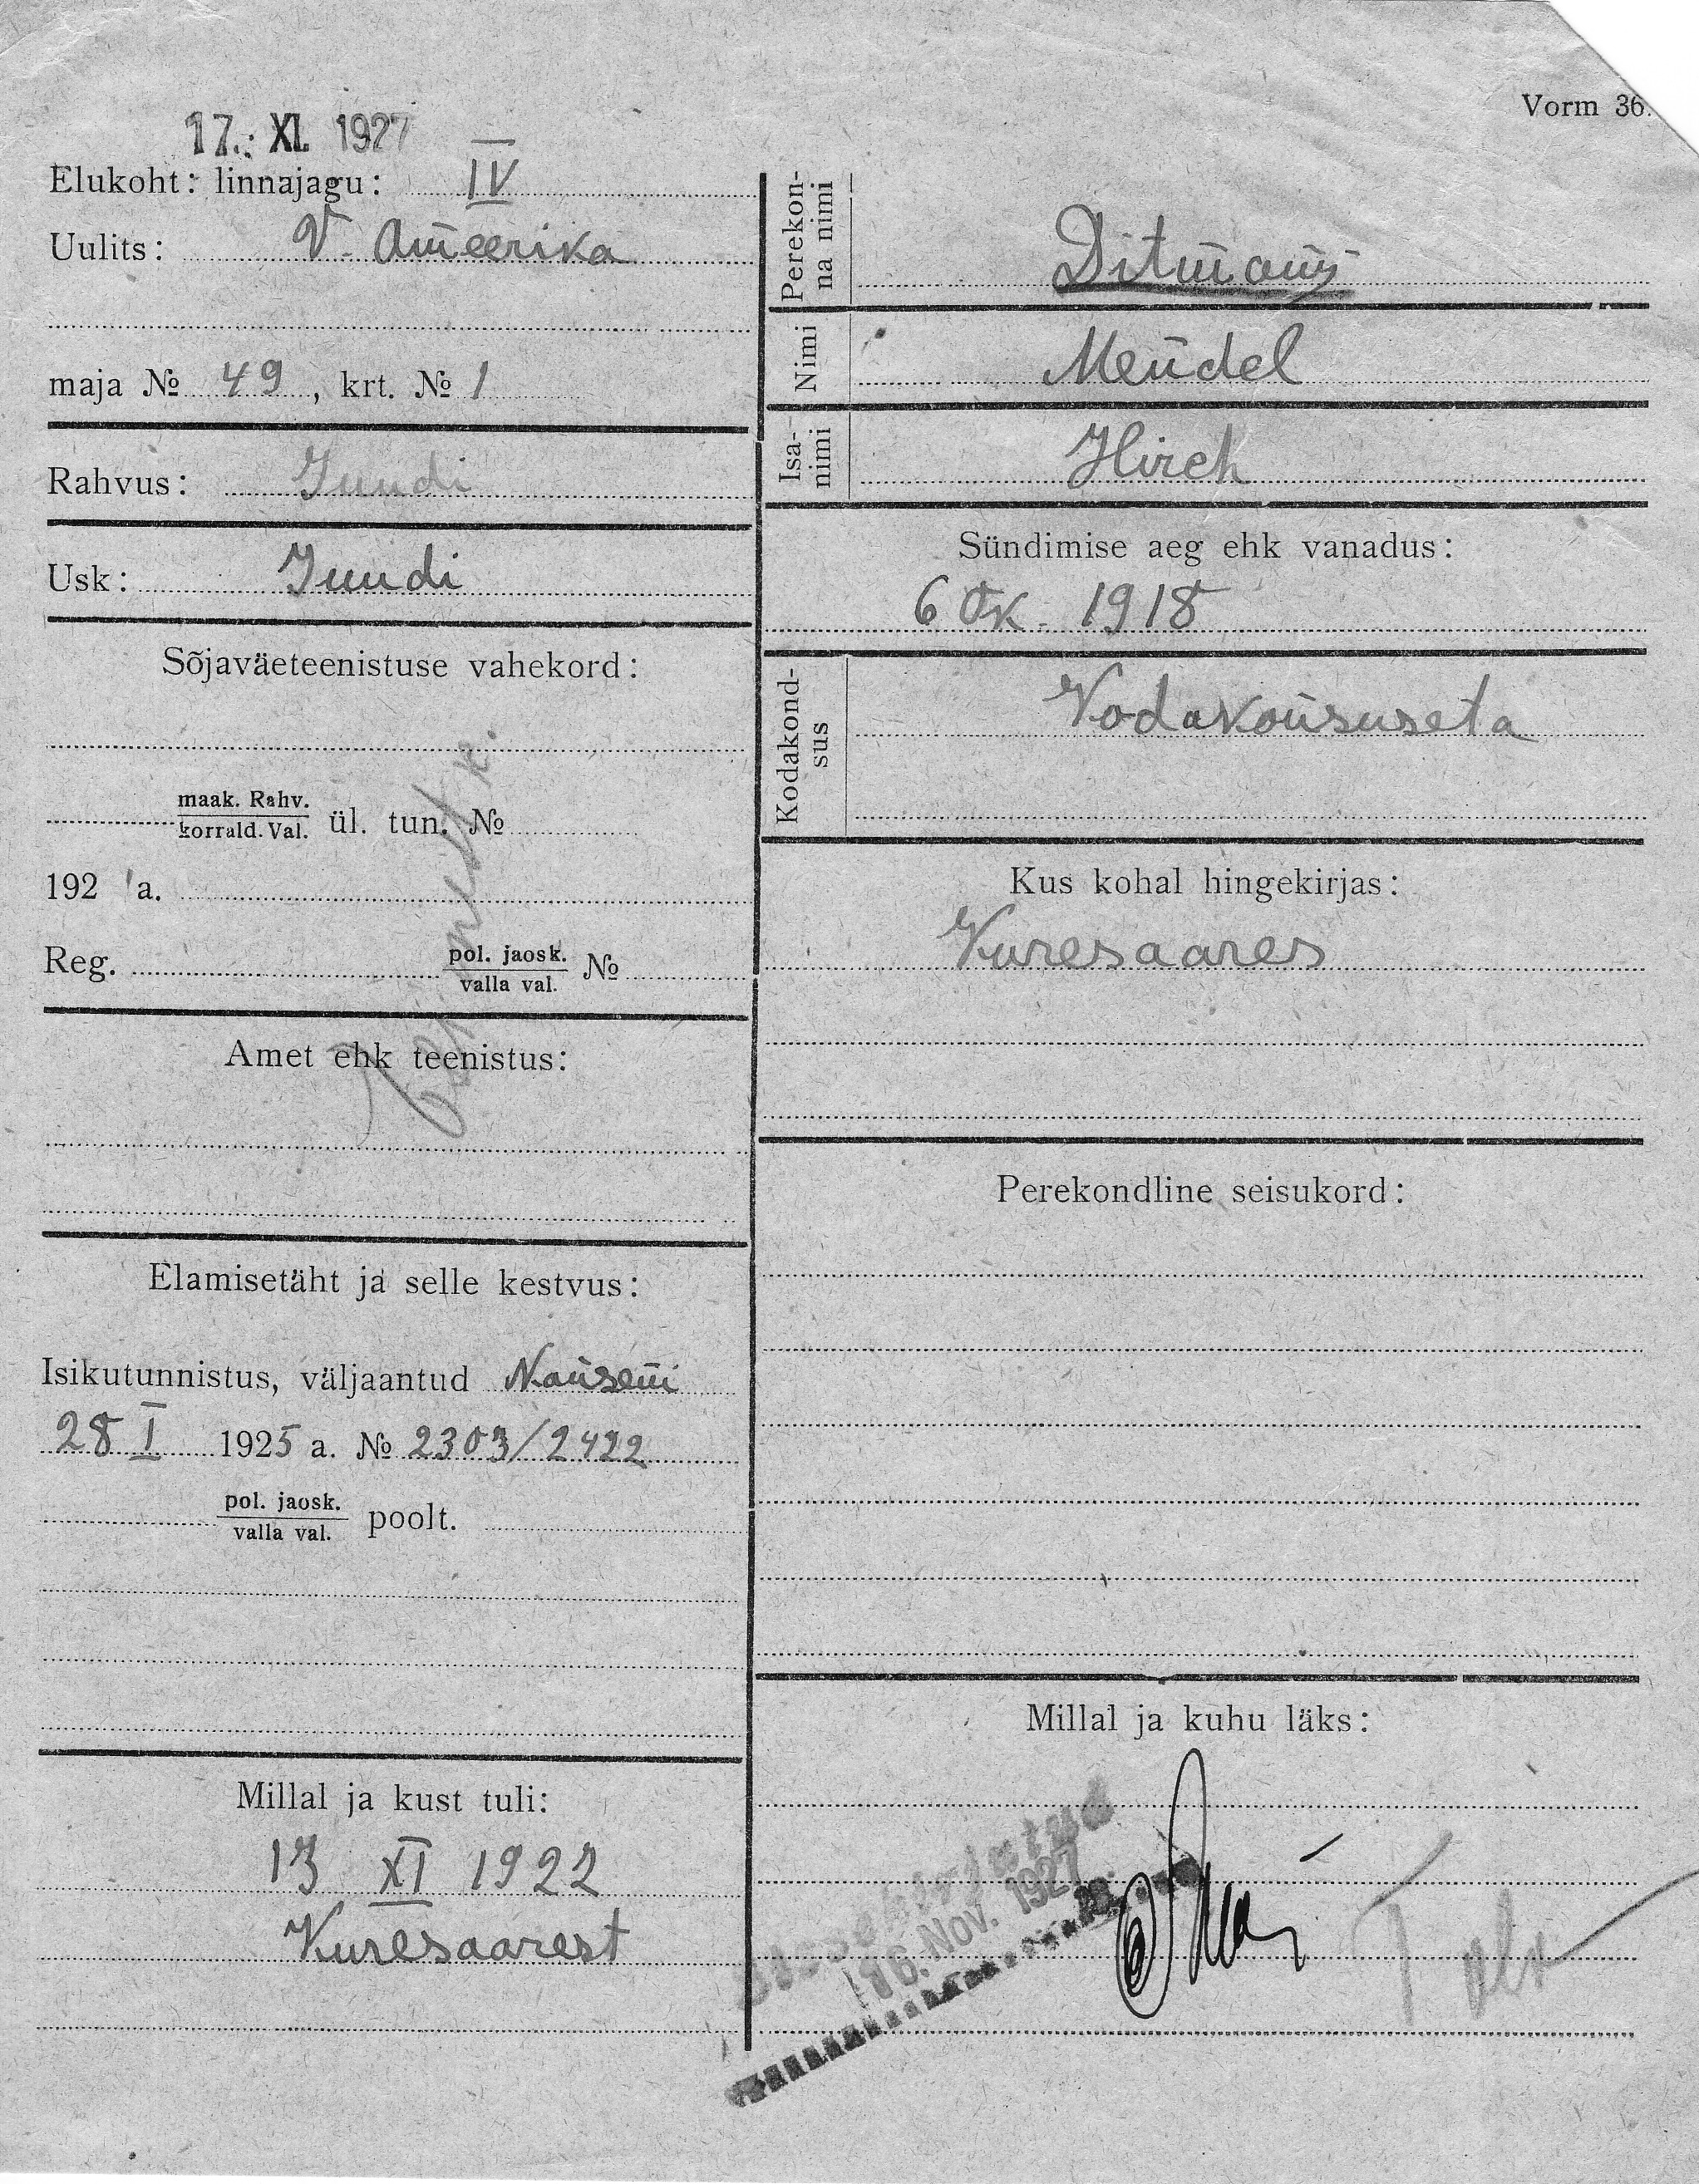 Vorm 36.
17. XI. 1927
Elukoht: linnajagu: IV
Uulits: V. Ameerika
maja № 49, krt. № 1
Rahvus: Juudi
Usk: Juudi
Sõjaväeteenistuse vahekord:
maak. Rahv.
korrald. Val. ül. tun. №
192 a.
Reg. pol. jaosk.
valla val. №
Amet ehk teenistus:
Elamisetäht ja selle kestvus:
Isikutunnistus, väljaantud Nanseni
28 I 1925 a. № 2303/2422
pol. jaosk.
valla val. poolt.
Millal ja kust tuli:
13 XI 1922
Kuresaarest
Perekon-
na nimi
Ditmann
Nimi Mendel
Isa-
nimi
Hirch
Sündimise aeg ehk vanadus:
6 Ok. 1918
Kodakond-
sus
Kodakonsuseta
Kus kohal hingekirjas:
Kuresaares
Perekondline seisukord:
Millal ja kuhu läks:
Sissekirjutud
16. Nov. 1927